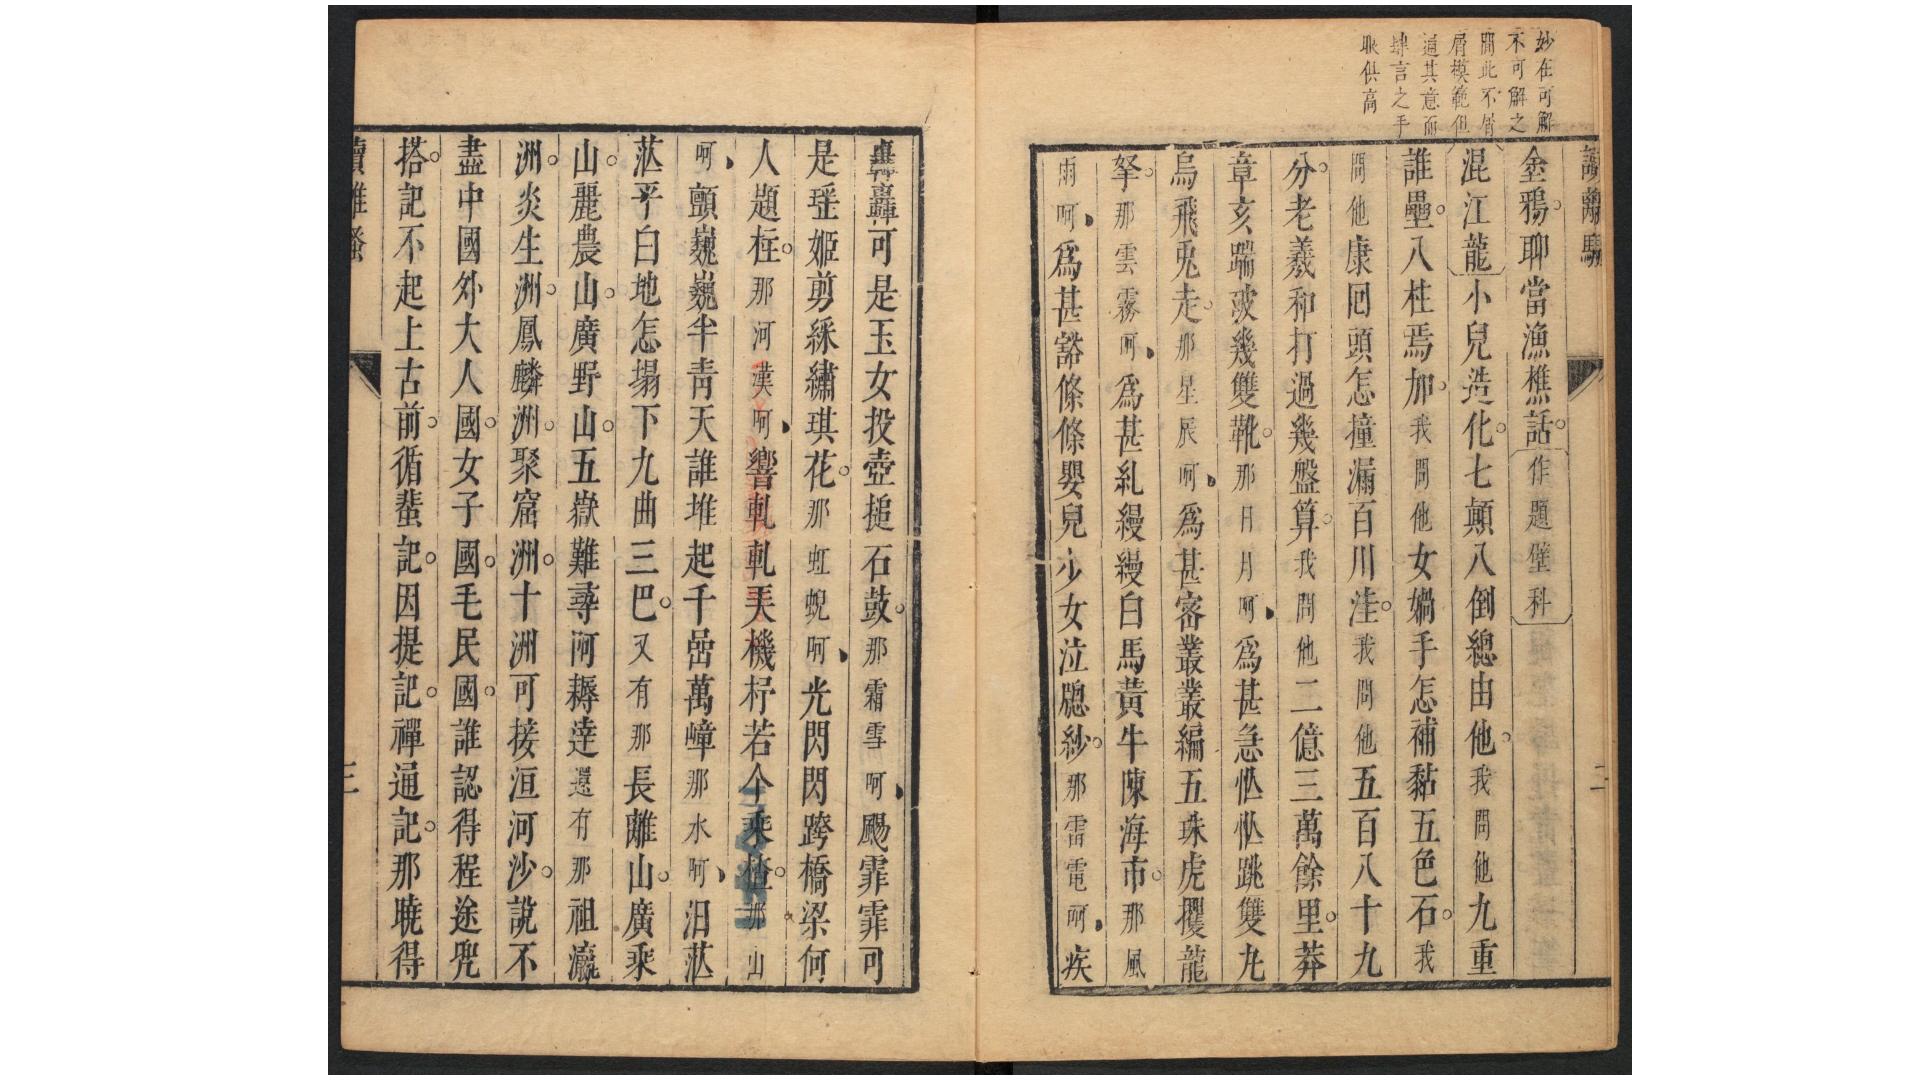 妙在可解
不可解之
間此不屑
屑模範但
適其意而
肆言之手
眼供高
讀離騷
二
金鴉聊當漁樵話作題壁科
混江龍小兒造化七顛八倒總由他我問他九重
誰壘八柱焉加我問他女媧手怎補黏五色石我
問他康回頭怎撞漏百川洼我問他五百八十九
分老羲和打過幾盤算我問他二億三萬餘里莽
章亥踹破幾雙靴那日月呵爲甚急忪忪跳雙丸
烏飛兎走那星辰呵爲甚密叢叢編五珠虎攫龍
拏那雲霧呵爲甚糺縵縵白馬黃牛陳海市那風
雨呵爲甚豁條條嬰兒少女泣牕紗那雷電呵疾
轟轟可是玉女投壺搥石鼓那霜雪呵颺霏霏可
是瑶姬剪綵繡琪花那虹蜺呵光閃閃跨橋梁何
人題柱那河漢呵響軋軋天機杼若个乘楂那山
呵顫巍巍半靑天誰堆起千嵒萬嶂那水呵汨茫
茫平白地怎塌下九曲三巴又有那長離山廣乘
山麗農山廣野山五嶽難尋阿耨達還有那祖瀛
洲炎生洲鳳麟洲聚窟洲十洲可接洹河沙說不
盡中國外大人國女子國毛民國誰認得程途兜
搭記不起上古前循蜚記因提記禪通記那曉得
讀離騷
三